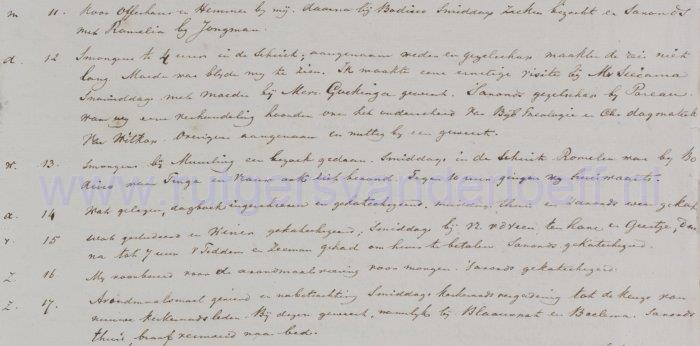 m 11. Voor Offerhaus en Hemmes bij mij, daarna bij Bodisco Smiddags zieken bezocht en Savonds
met Romelia by Jongman.
d. 12 Smorgens te 4 uur in de Schuit; aangenaam weder en gezelschap maakten de reis niet
lang. Moeder was blijde my te zien. Ik maakte eene ernstige visite bij Mr
Snamiddags met moeder bij Mevr. Guikinga geweest. Savonds gezelschap bij Pareau.
waar wy eene verhandeling hoorden over het onderscheid van Bijb Theologie en Chr. dogmatiek
van Wilkon. Overigens aangenaam en nuttig bij een geweest.
w. 13. Smorgens bij Muurling een bezoek gedaan. Smiddags in de Schuit Romelia was by Bo
van ook ziek bezoend. Tegen 10 uur gingen wy huiswaarts.
d. 14 Wat gelezen, dagboek ingeschreven en gekatechizeerd, middag thuis en Savonds weer gekat
v. 15 wat gestudeerd en gekatechizeerd; Smiddags bij ten have en Geertje; Daar
na tot 7 uur Tiddens en Zeeman gehad om huur te betalen Savonds gekatechizeerd.
Z. 16 My voorbereid voor de avondmaalsviering voor morgen. Savonds gekatechizeerd.
Z. 17. Avondmaalsmaal gevierd en nabetrachting Smiddags kerkenraadsvergadering tot de keuze van
nieuwe kerkenraadsleden. Bij dezen geweest, namelijk bij Blaauwpot en Boelema. Savonds
thuis, braaf vermoeid naar bed.
www.rutgersvanderloeff.nl